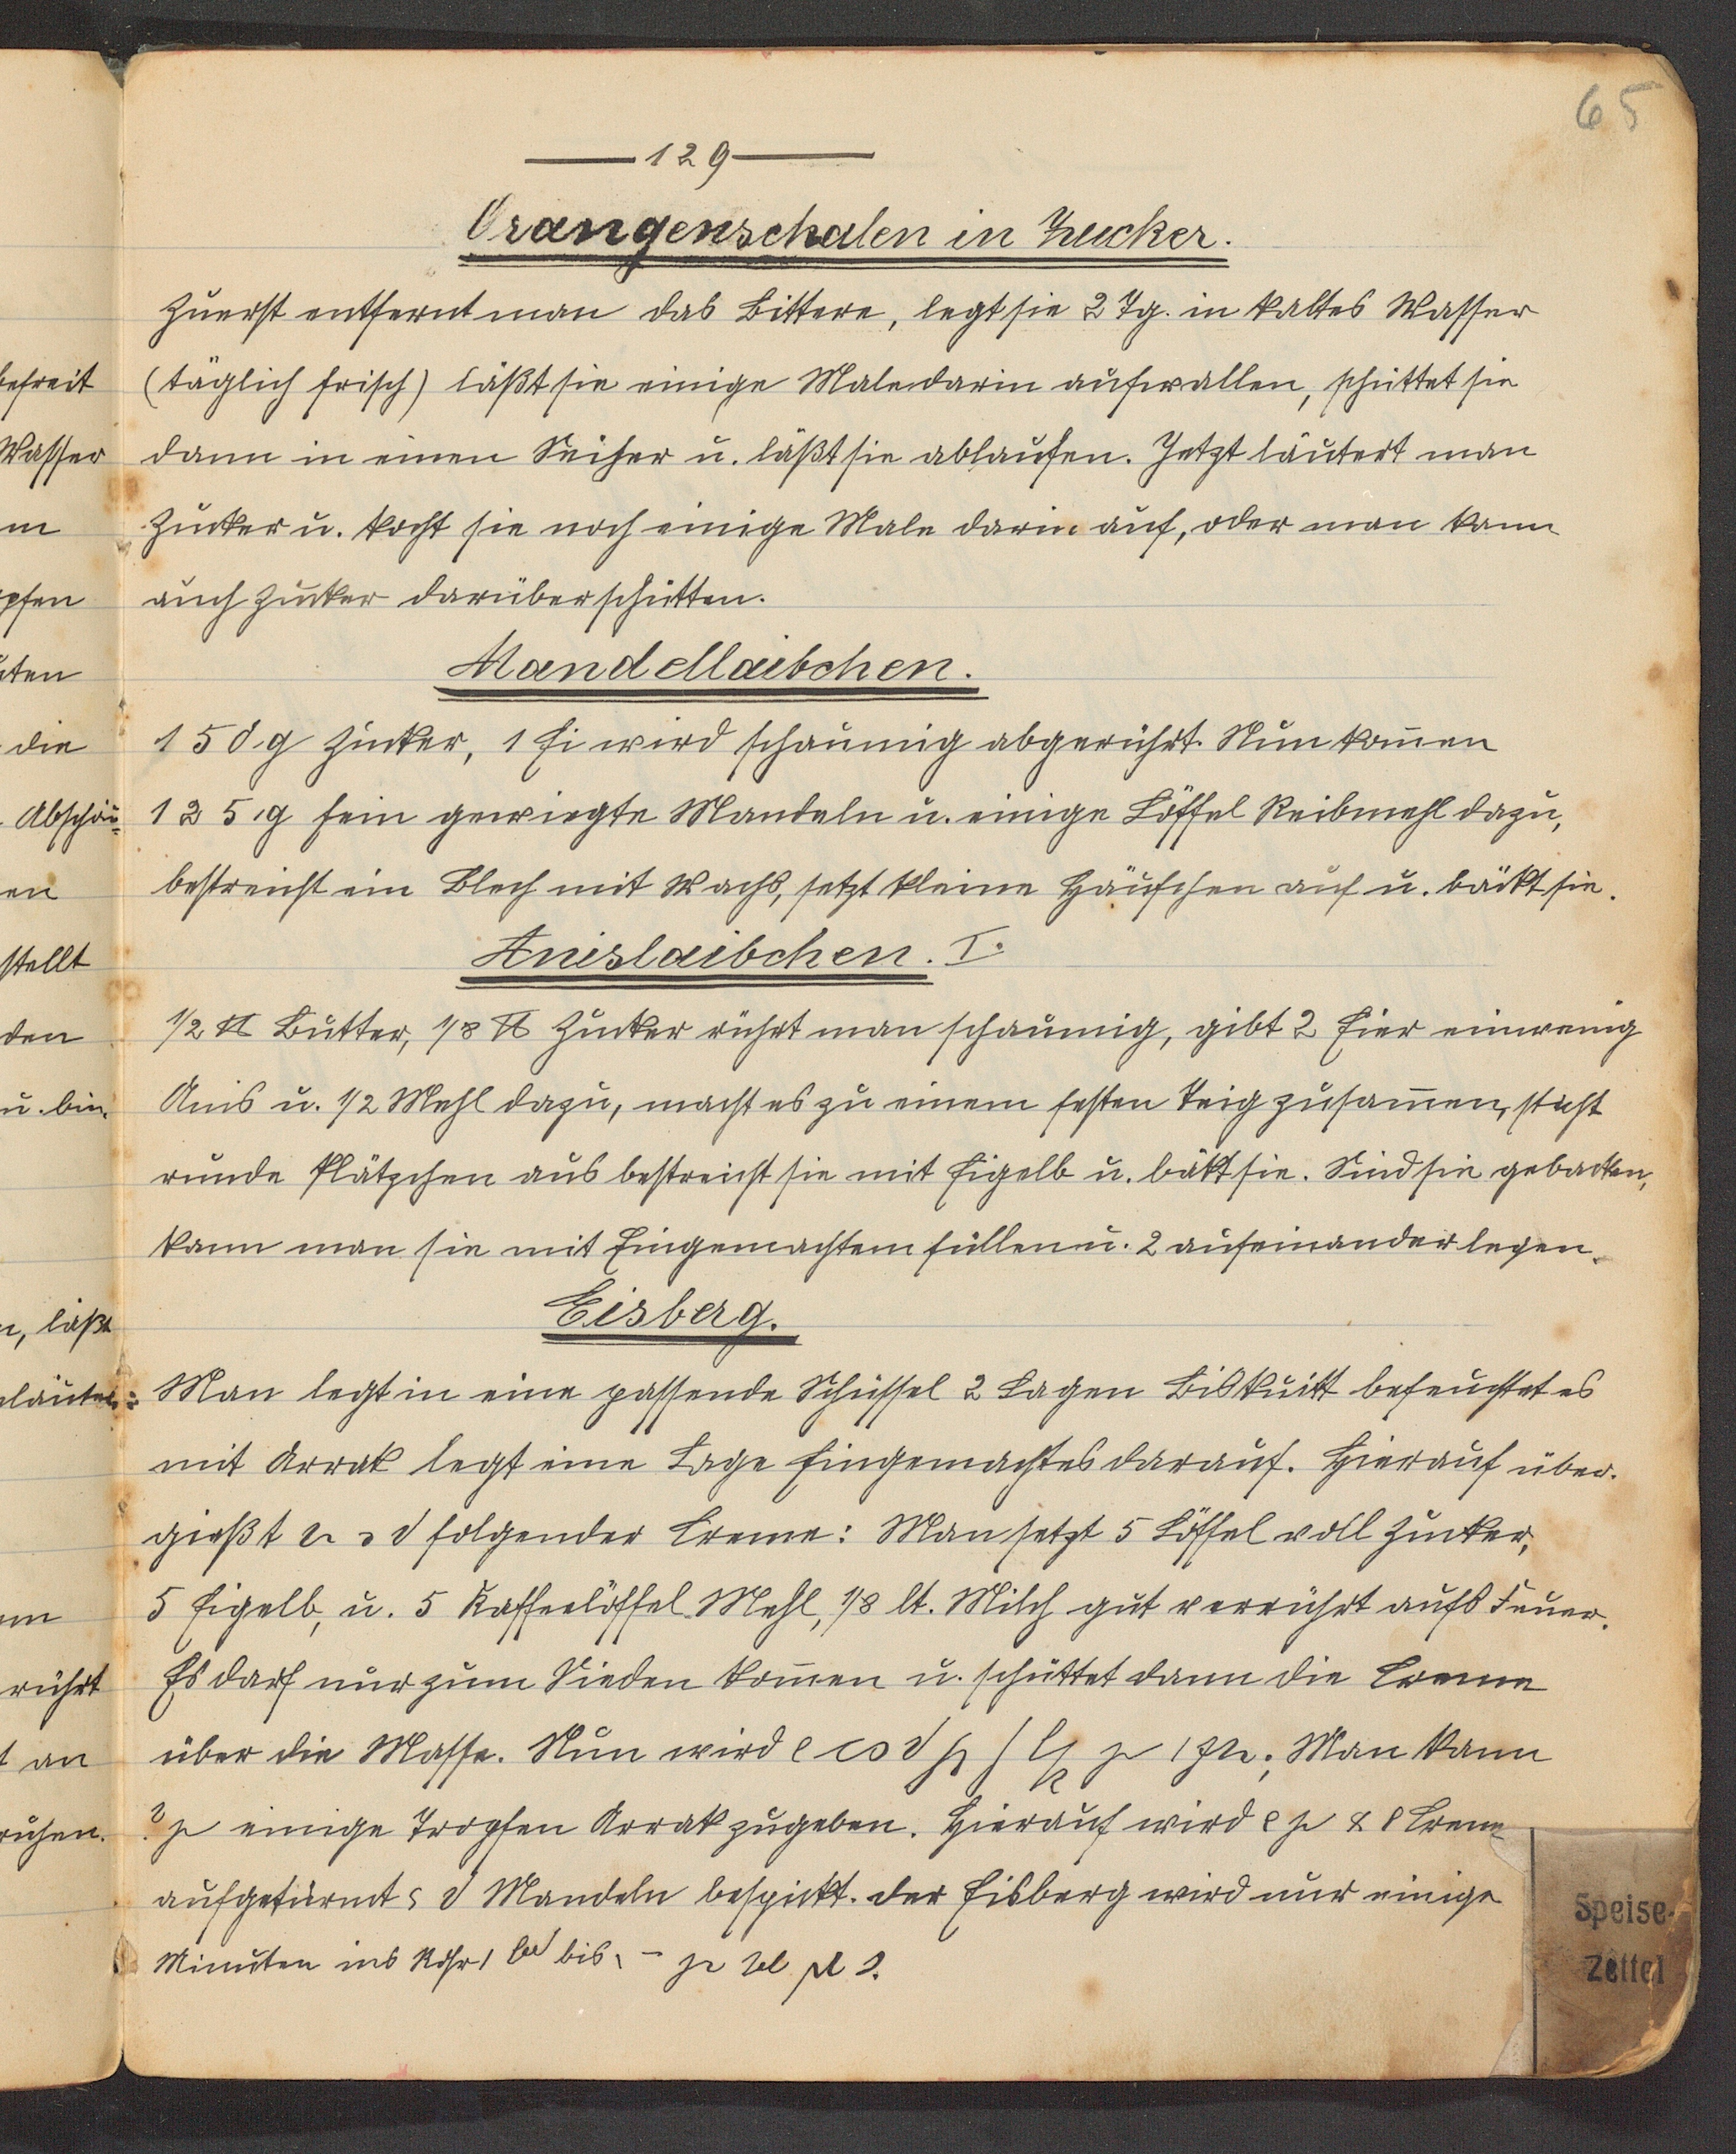 65
129
Orangenschalen in Zucker.
Zuerst entfernt man das Bittere, legt sie 2 Tg. in kaltes Wasser
(täglich frisch) läßt sie einige Male darin aufwallen, schüttet sie
dann in einen Seiher u. läßt sie ablaufen. Jetzt läutert man
Zucker u. kocht sie noch einige Male darin auf, oder man kann
auch Zucker darüberschütten.
Mandellaibchen.
150 g Zucker, 1 Ei wird schaumig abgerührt. Nun kom̄en
125 g fein gewiegte Mandeln u. einige Löffel Reibmehl dazu,
bestreicht ein Blech mit Wachs, setzt kleine Häufchen auf u. bäckt sie.
Anislaibchen. I.
1/2 ℔ Butter, 1/8 ℔ Zucker rührt man schaumig, gibt 2 Eier einwenig
Anis u. 1/2 Mehl dazu, macht es zu einem festen Teig zusam̄en, sticht
runde Plätzchen aus bestreicht sie mit Eigelb u. bäkt sie. Sind sie gebacken,
kann man sie mit Eingemachtem füllen u. 2 aufeinander legen.
Eisberg.
Man legt in eine passende Schüssel 2 Lagen Biskuitt befeuchtet es
mit Arrak legt eine Lage Eingemachtes darauf. Hierauf über-
gießt folgender Creme: Man setzt 5 Löffel voll Zucker,
5 Eigelb, u. 5 Kaffeelöffel Mehl, 1/8 lt. Milch gut verrührt aufs Feuer.
Es darf nur zum Sieden kom̄en u. schüttet dann die Creme
über die Masse. Nun wird Man kann
einige Tropfen Arrak zugeben. Hierauf wird Creme
aufgetürmt Mandeln bespickt. der Eisberg wird nur einige
Minuten ins Rohr bis
Speise-
Zettel
befreit
Wasser
die
Abschäu-
stellt
den
u. bin-
läßt
rührt
an